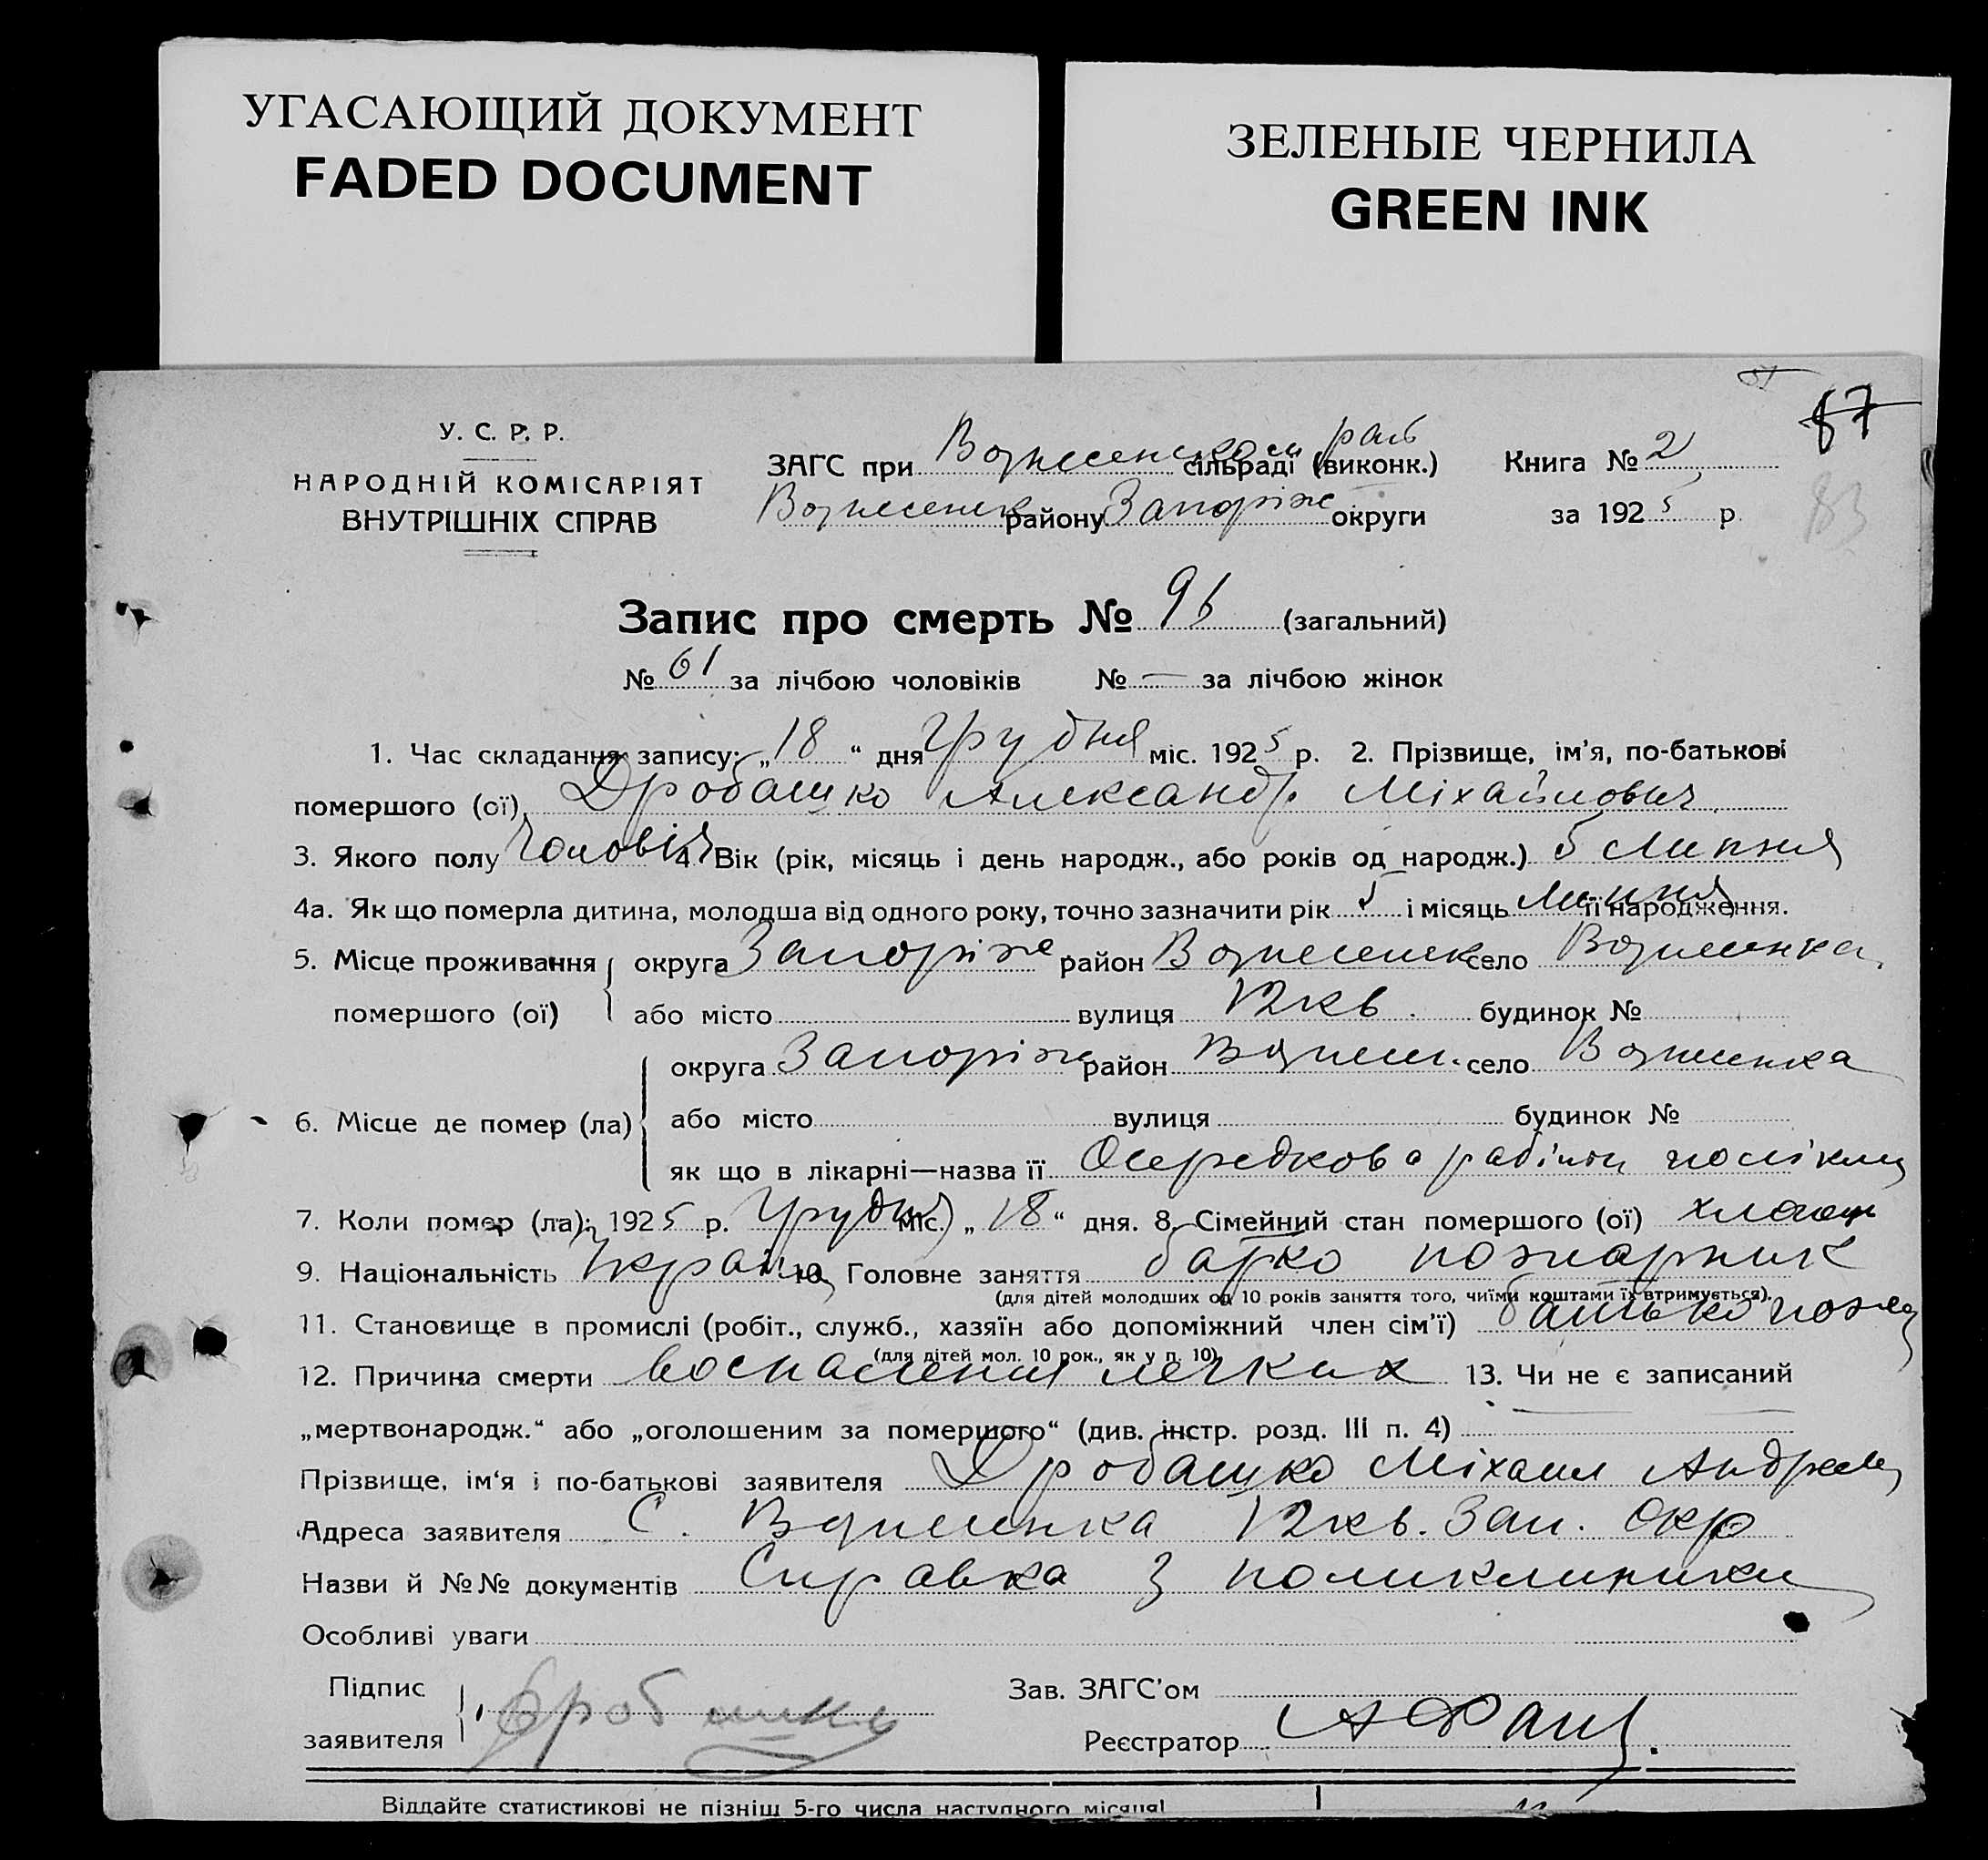 УГАСАЮЩИЙ ДОКУМЕНТ
FADED DOCUMENT
ЗЕЛЕНЫЕ ЧЕРНИЛА
GREEN INK
87
83
У. С. Р. Р.
НАРОДНІЙ КОМІСАРІЯТ
ВНУТРІШНІХ СПРАВ
ЗАГС при Вознесенском рай сільраді (виконк.)
Вознесенск району Запоріж округи
Книга № 2
за 1925 р.
Запис про смерть № 96 (загальний)
№ 61 за лічбою чоловіків № — за лічбою жінок
1. Час складання запису: „18“ дня Грудня міс. 1925 р. 2. Прізвище, ім'я, по-батькові
помершого (ої) Дробашко Александр Міхайлович
3. Якого полу Чоловіч 4. Вік (рік, місяць і день народж., або років од народж.) 5 Липня
4а. Як що померла дитина, молодша від одного року, точно зазначити рік 5 і місяць Липня її народження.
5. Місце проживання округа Запоріж район Вознесенск село Вознесенка
помершого (ої) або місто вулиця 12 кв. будинок №
округа Запоріж район Вознесен. село Вознесенка
6. Місце де помер (ла) або місто вулиця будинок №
як що в лікарні—назва її Осередкова рабітн полікл
7. Коли помер (ла): 1925 р. Грудня міс. „18“ дня. 8. Сімейний стан помершого (ої) хлопець
9. Національність Україн 10. Головне заняття батько пожарник
(для дітей молодших од 10 років заняття того, чиїми коштами їх втримується).
11. Становище в промислі (робіт., служб., хазяїн або допоміжний член сім'ї) батько пожар
(для дітей мол. 10 рок., як у п. 10)
12. Причина смерти воспаления легких 13. Чи не є записаний
„мертвонародж.“ або „оголошеним за помершого“ (див. інстр. розд. III п. 4)
Прізвище, ім'я і по-батькові заявителя Дробашко Міхаил Андреев
Адреса заявителя С. Вознесенка 12 кв. Зап. Окр
Назви й №№ документів Справка з поликлиники
Особливі уваги
Підпис
заявителя Дробашко
Зав. ЗАГС'ом
Реєстратор
Віддайте статистикові не пізніш 5-го числа наступного місяця!